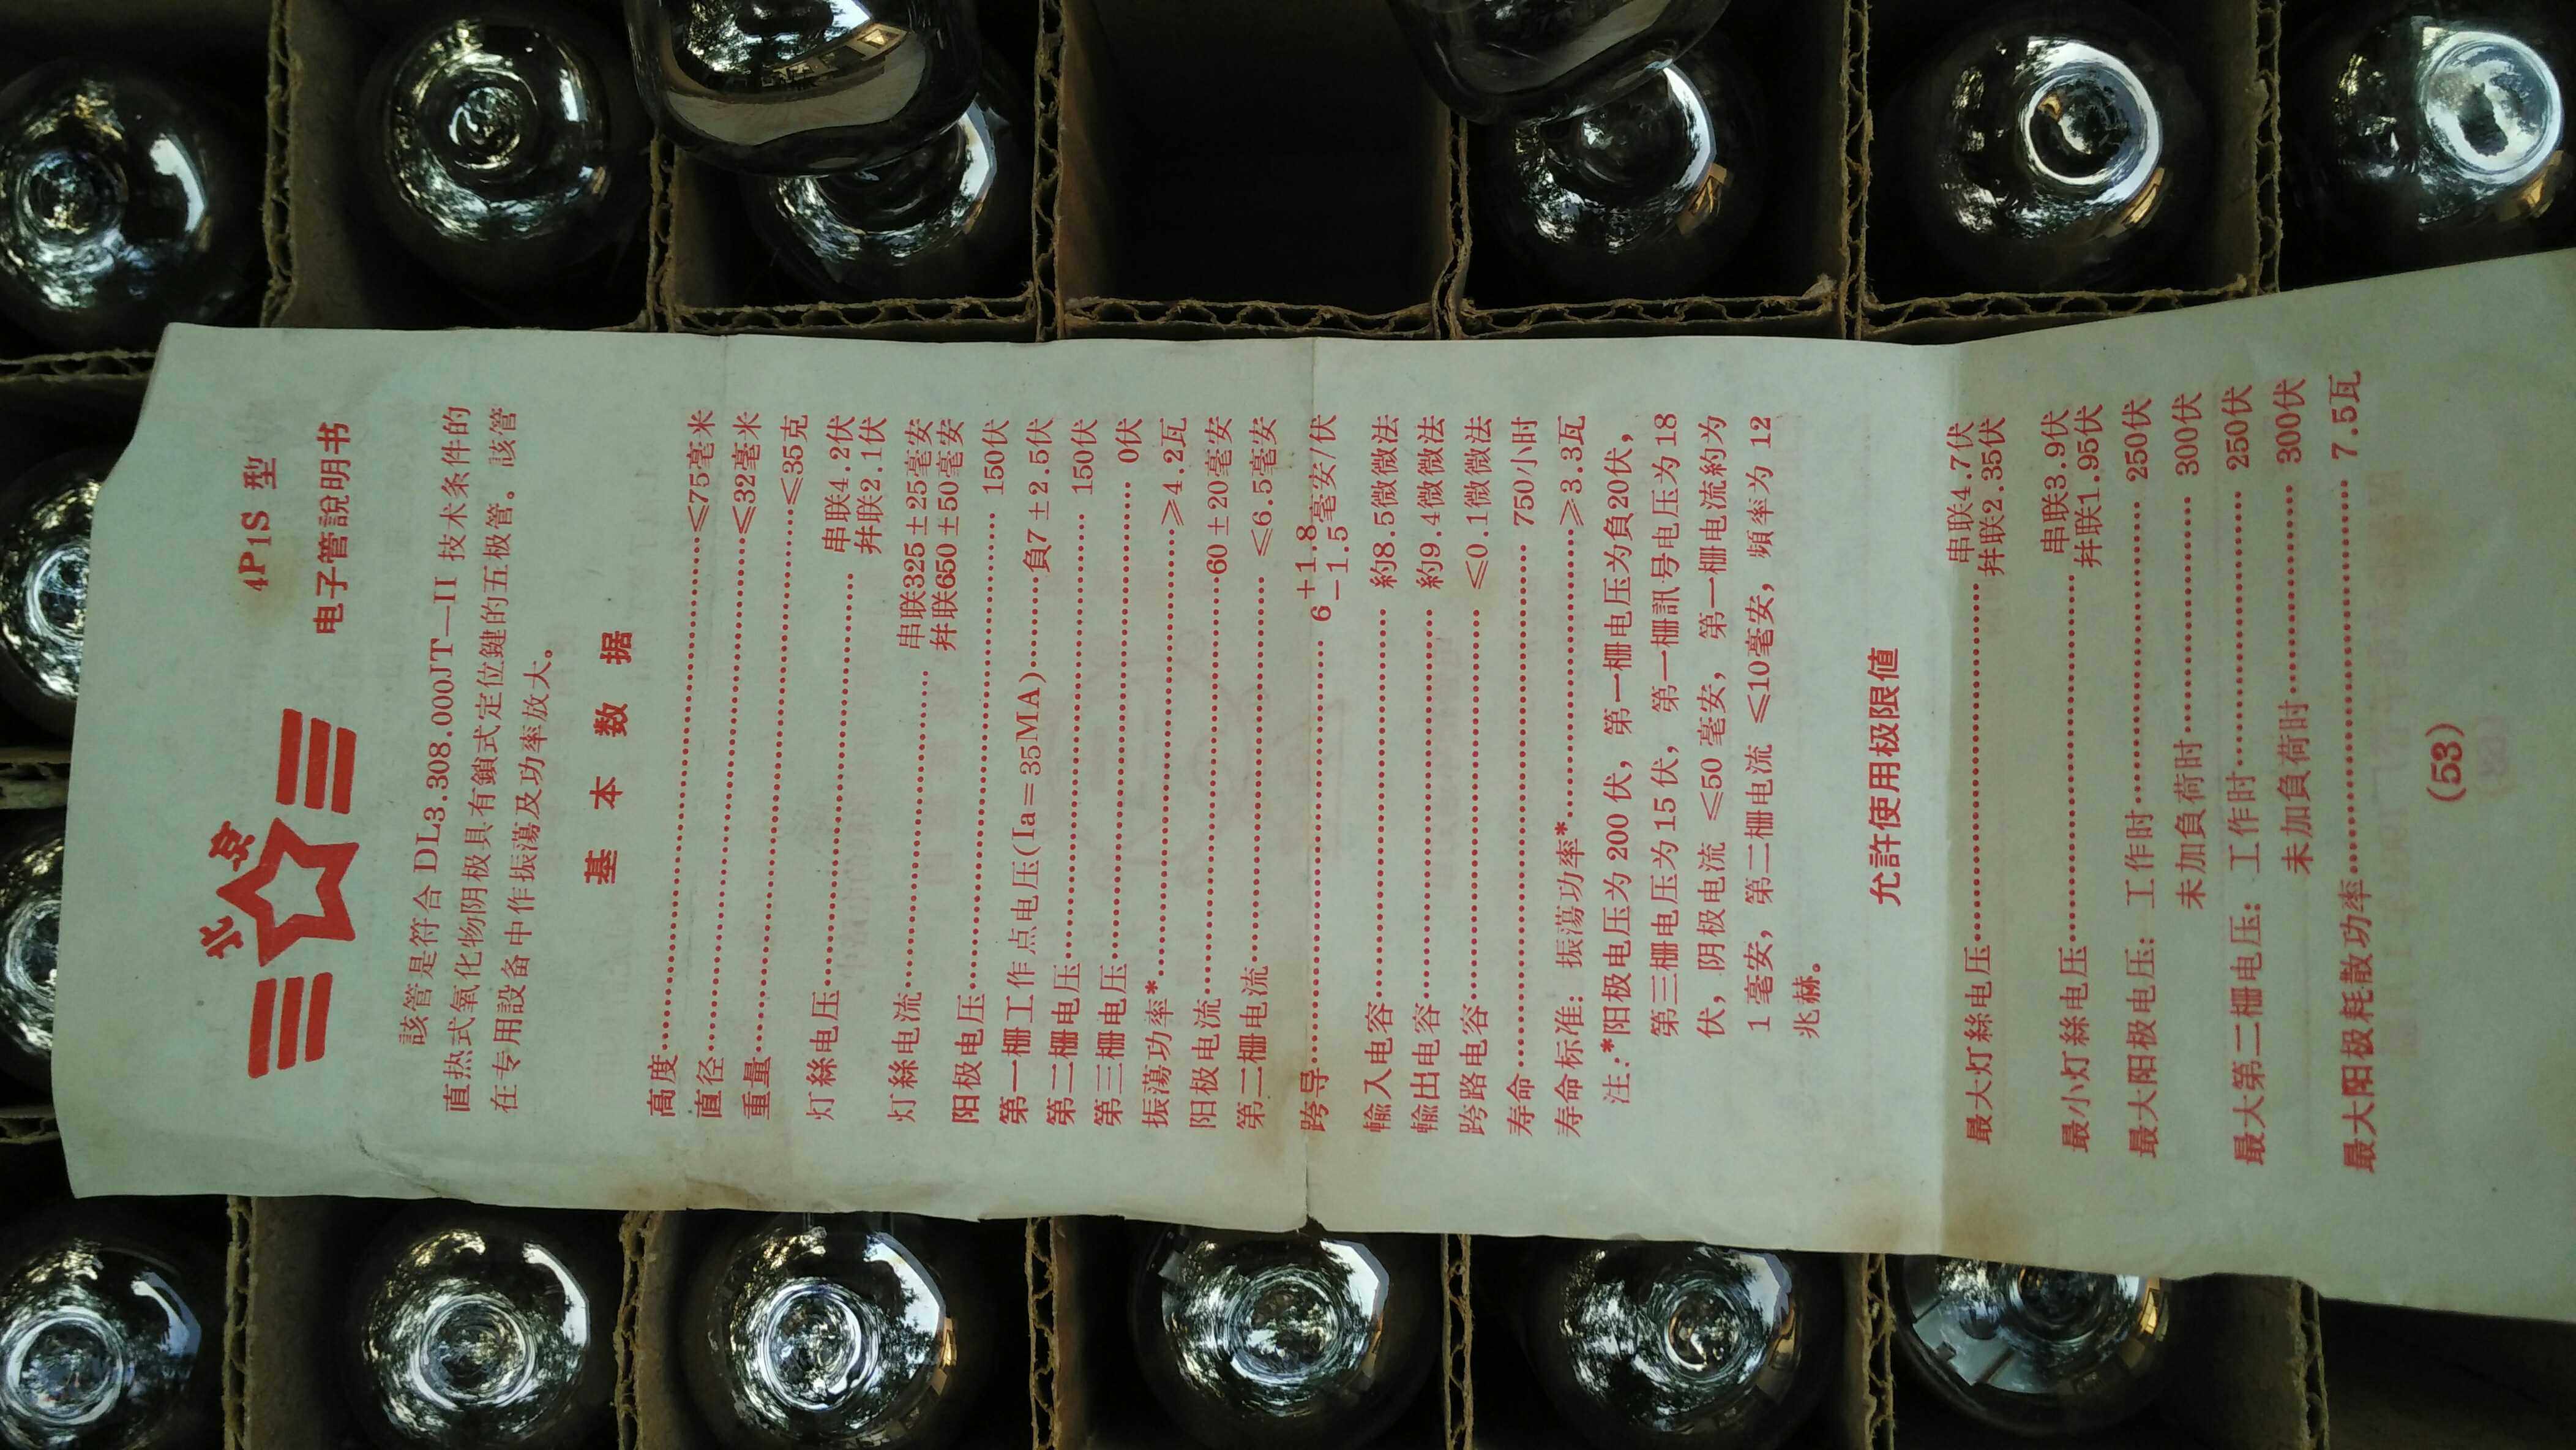 北京
4P1S 型
电子管說明书
該管是符合 DL3.308.000JT—II 技术条件的
直热式氧化物阴极具有鎖式定位鍵的五极管。該管
在专用設备中作振荡及功率放大。
基 本 数 据
高度……≤75毫米
直径……≤32毫米
重量……≤35克
灯絲电压……串联4.2伏
幷联2.1伏
灯絲电流……串联325±25毫安
幷联650±50毫安
阳极电压……150伏
第一栅工作点电压(Ia=35MA)……負7±2.5伏
第二栅电压……150伏
第三栅电压……0伏
振蕩功率*……≥4.2瓦
阳极电流……60±20毫安
第二栅电流……≤6.5毫安
跨导……6 +1.8 −1.5 毫安/伏
輸入电容……約8.5微微法
輸出电容……約9.4微微法
跨路电容……≤0.1微微法
寿命……750小时
寿命标准：振蕩功率*……≥3.3瓦
注：*阳极电压为 200 伏，第一栅电压为負20伏，
第三栅电压为 15 伏，第一栅訊号电压为 18
伏，阴极电流 ≤50 毫安，第一栅电流約为
1 毫安，第二栅电流 ≤10毫安，頻率为 12
兆赫。
允許使用极限值
最大灯絲电压……串联4.7伏
幷联2.35伏
最小灯絲电压……串联3.9伏
幷联1.95伏
最大阳极电压：工作时……250伏
未加負荷时……300伏
最大第二栅电压：工作时……250伏
未加負荷时……300伏
最大阳极耗散功率……7.5瓦
(53)